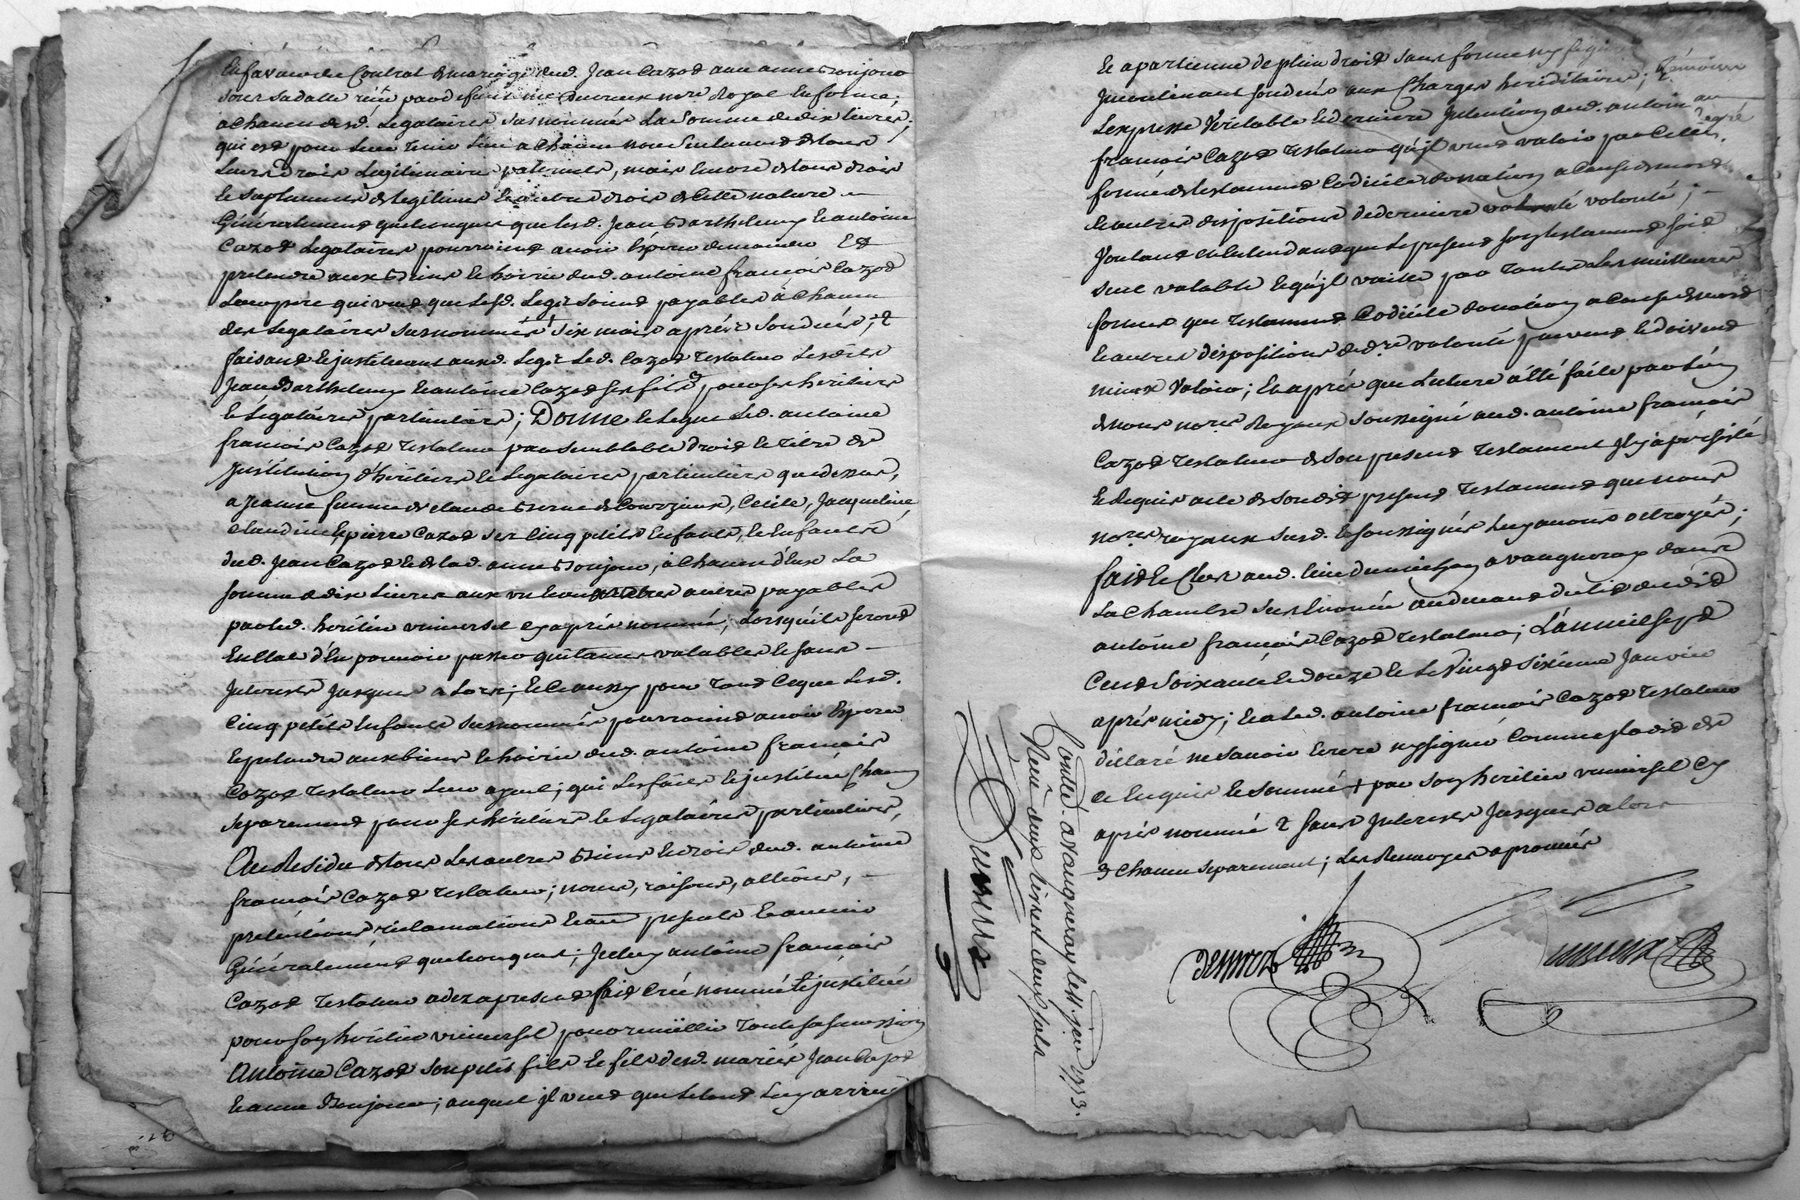 En faveur du Contrat de mariage dud. Jean Cazot avec anne Boujon
sous sa datte reçu par defunt me Royal En forme;
a chacun desd. Legataires susnommés La Somme de dix livres;
qui est pour Leur tenir Lieu a chacun non seulement de tous
Leurs Droits Legitimaires paternels, mais Encore de tous droits
Et suplement de legitime Et autres droits de Cette nature
Généralement quelconques que lesd. Jean Barthelemy Et antoine
Cazot Legataires pourroient avoir Espérer demander Et
pretendre aux Biens Et hoirie dud. antoine françois Cazot
Leur pere qui veut que Lesd. Legs soient payables à chacun
des Legataires susnommés six mois après son décès; &
faisant Et instituant auxd. Legs Led. Cazot Testateur Lesdits
Jean Barthelemy Et antoine Cazot ses fils pour ses heritiers
Et Légataires particuliers; Donne Et Legue Led. antoine
françois Cazot Testateur par semblable droit Et titre de
Institution d'héritiers Et Legataires particuliers que dessus,
a Jeanne femme de claude de Courzieux, Cecile, Jacqueline,
claudine Et pierre Cazot ses Cinq petits Enfants, Et Enfants
dud. Jean Cazot Et de lad. anne Boujon, à chacun d'Eux La
somme de dix Livres aux uns Comme aux autres payables
par led. heritier universel cy après nommé, Lorsqu'ils seront
En Etat d'En pouvoir passer quittance valable Et sans
Interets Jusques a Lors; Et Ce aussy pour tout Ce que Lesd.
Cinq petits Enfants susnommés pourroient avoir Esperer
Et pretendre aux biens Et hoirie dud. antoine françois
Cazot Testateur Leur ayeul; qui Les fait Et institue Chacun
separement pour ses heritiers Et Legataires particuliers,
Au Residu de tous Les autres Biens Et droits dud. antoine
françois Cazot Testateur; noms, raisons, actions,
prétentions réclamations Et presents Et avenir
Généralement quelconques; Iceluy antoine françois
Cazot Testateur a de sa presente fait Créé nommé Et institué
pour son héritier universel pour recueillir toute sa succession
Antoine Cazot son petit fils Et fils desd. mariés Jean Cazot
Et anne Boujon; auquel il veut que Le tout Luy arrive
Et apartienne de plein droit sans forme ny figure
Incontinant son decès aux Charges hereditaires;
L'expresse Veritable Et derniere Intention dud. antoine
françois Cazot Testateur qu'il veut valoir par Cette
forme de testament Codicile donation a Cause de mort
Et autres dispositions de derniere volonté;
Voulant Et Entendant que Le present son testament soit
seul valable Et qu'il vaille par toutes Les meilleures
formes que Testament Codicile donation a Cause de mort
Et autres dispositions de dre volonté peuvent Et doivent
mieux Valoir; Et après que Lecture a été faite par L'un
de nous nores Royaux soussigné aud. antoine françois
Cazot Testateur de Son present Testament Il y a persisté
Et Requis acte de Son dit present Testament que nous
nores royaux susd. Et soussignés Luy avons octroyés;
fait Et Clos aud. Lieu a vaugneray dans
La Chambre sus Enoncée au devant du Lit dudit
antoine françois Cazot Testateur; L'an mil sept
Cent Soixante Et douze Et Le Vingt sixieme Janvier
après midy; Et a Led. antoine françois Cazot Testateur
déclaré ne savoir Ecrire ny signer Comme plus dit de
Ce Enquis Et sommé + par son heritier universel Cy
après nommé & sans Interets Jusques alors
& Chacun separement; Les Renvoyes aprouvés
Conllé. a vaugneray Le 1772.